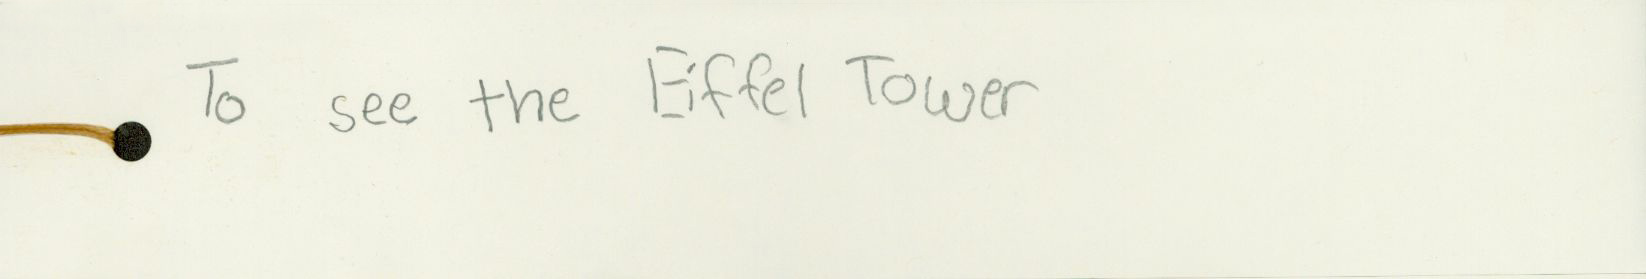 To see the Eiffel Tower